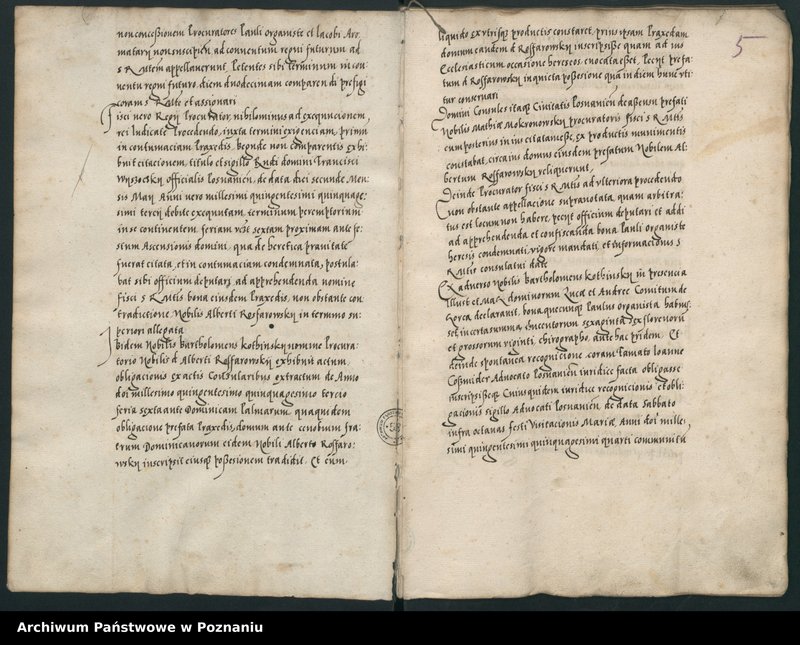 non concessionem Procuratores Pauli organiste et Iacobi Aro
matarij non suscipien ad conuentum regni futurum ad
S R Mtem appellauerunt, Petentes sibi terminum in con
uentu regni futuro diem duodecimam comparen di prefigi
coram S R Mte et assionari
Fisci vero Regij Procurator nihilominus ad exequucionem
rei Iudicate Procedendo, iuxta termini exigenciam, primi
in contumaciam Praxedis, beonde non comparentis exhi,
buit citacionem, titulo et sigillo Rndi domini Francisci
Wyssoczky officialis Posnanien, de data diei secunde Men
sis Maij Anni vero millesimi quingentesimi quinquage,
simi tercij debite exequutam, terminum peremptorium
in se continentem, feriam sextam proximam ante fe,
stum Ascensionis domini, qua de heretica prauitate
fuerat citata, et in contumaciam condemnata, postula,
bat sibi officium deputari, ad apprehendenda nomine
fisci S R Mtis bona eiusdem Praxedis, non obstante con
tradictione Nobilis Alberti Rosfarowsky in termino su,
periori allegata
Ibidem Nobilis Bartholomeus Kothinsky nomine Procura,
torio Nobilis d Alberti Rossarowsky exhibuit actum
obligacionis ex actis Consularibus extractum de Anno
doi millesimo quingentesimo quinquagesimo tercio
feria sexta ante Dominicam Palmarum, quaquidem
obligacione prefata Praxedis, domum ante cenobium fra,
trum Dominicanorum eidem Nobili Alberto Rossaro,
wsky inscripsit eiusq possesionem tradidit, Et cum
5
liquido ex vtrisq productis constaret, prius ipsam Praxedam
domum eandem d Rossarowsky inscripsisse quam ad ius
Ecclesiasticum occasione hereseos, euocata esset, Petijt prefa,
tum d Rossarowsky in quieta possesione qua in diem hunc vti
tur conseruari
Domini Consules itaq Ciuitatis Posnanien de assensu prefati
Nobilis Mathiae Mokronowsky procuratoris fisci S R Mtis
cum posterius in ius citatam esse, ex productis munimentis
constabat, circa ius domus eiusdem prefatum Nobilem Al,
bertum Rossarowsky reliquerunt,
Deinde Procurator fisci S R Mtis ad vlteriora procedendo
non obstante appellacione supranotata, quam arbitra,
tus est locum non habere, petijt officium deputari et addi
ad apprehendenda et confiscanda bona Pauli organiste
heresis condemnati, vigore mandati, et informacionis S
R Mtis consulatui date
Ex aduerso Nobilis Bartholomeus Kothinsky in presencia
Illust et Mag dominorum Lucae et Andree Comitum de
Gorca declarauit, bona quecunq Paulus organista habuis,
set, in certa summa, ducentorum sexaginta sex florenorum
et grossorum viginti, chirographo ante hac pridem, Et
deinde spontanea recognicione coram famato Ioanne
Cosmider Aduocato Posnanien iuridice facta obligasse
inscripsisseq, Cuiusquidem iuridice recognicionis et obli,
gacionis sigillo Aduocati Posnanien, de data Sabbato
infra octauas festi Visitacionis Mariae, Anni doi mille,
simi quingentesimi quinquagesimi quarti communitu
Archiwum Państwowe w Poznaniu